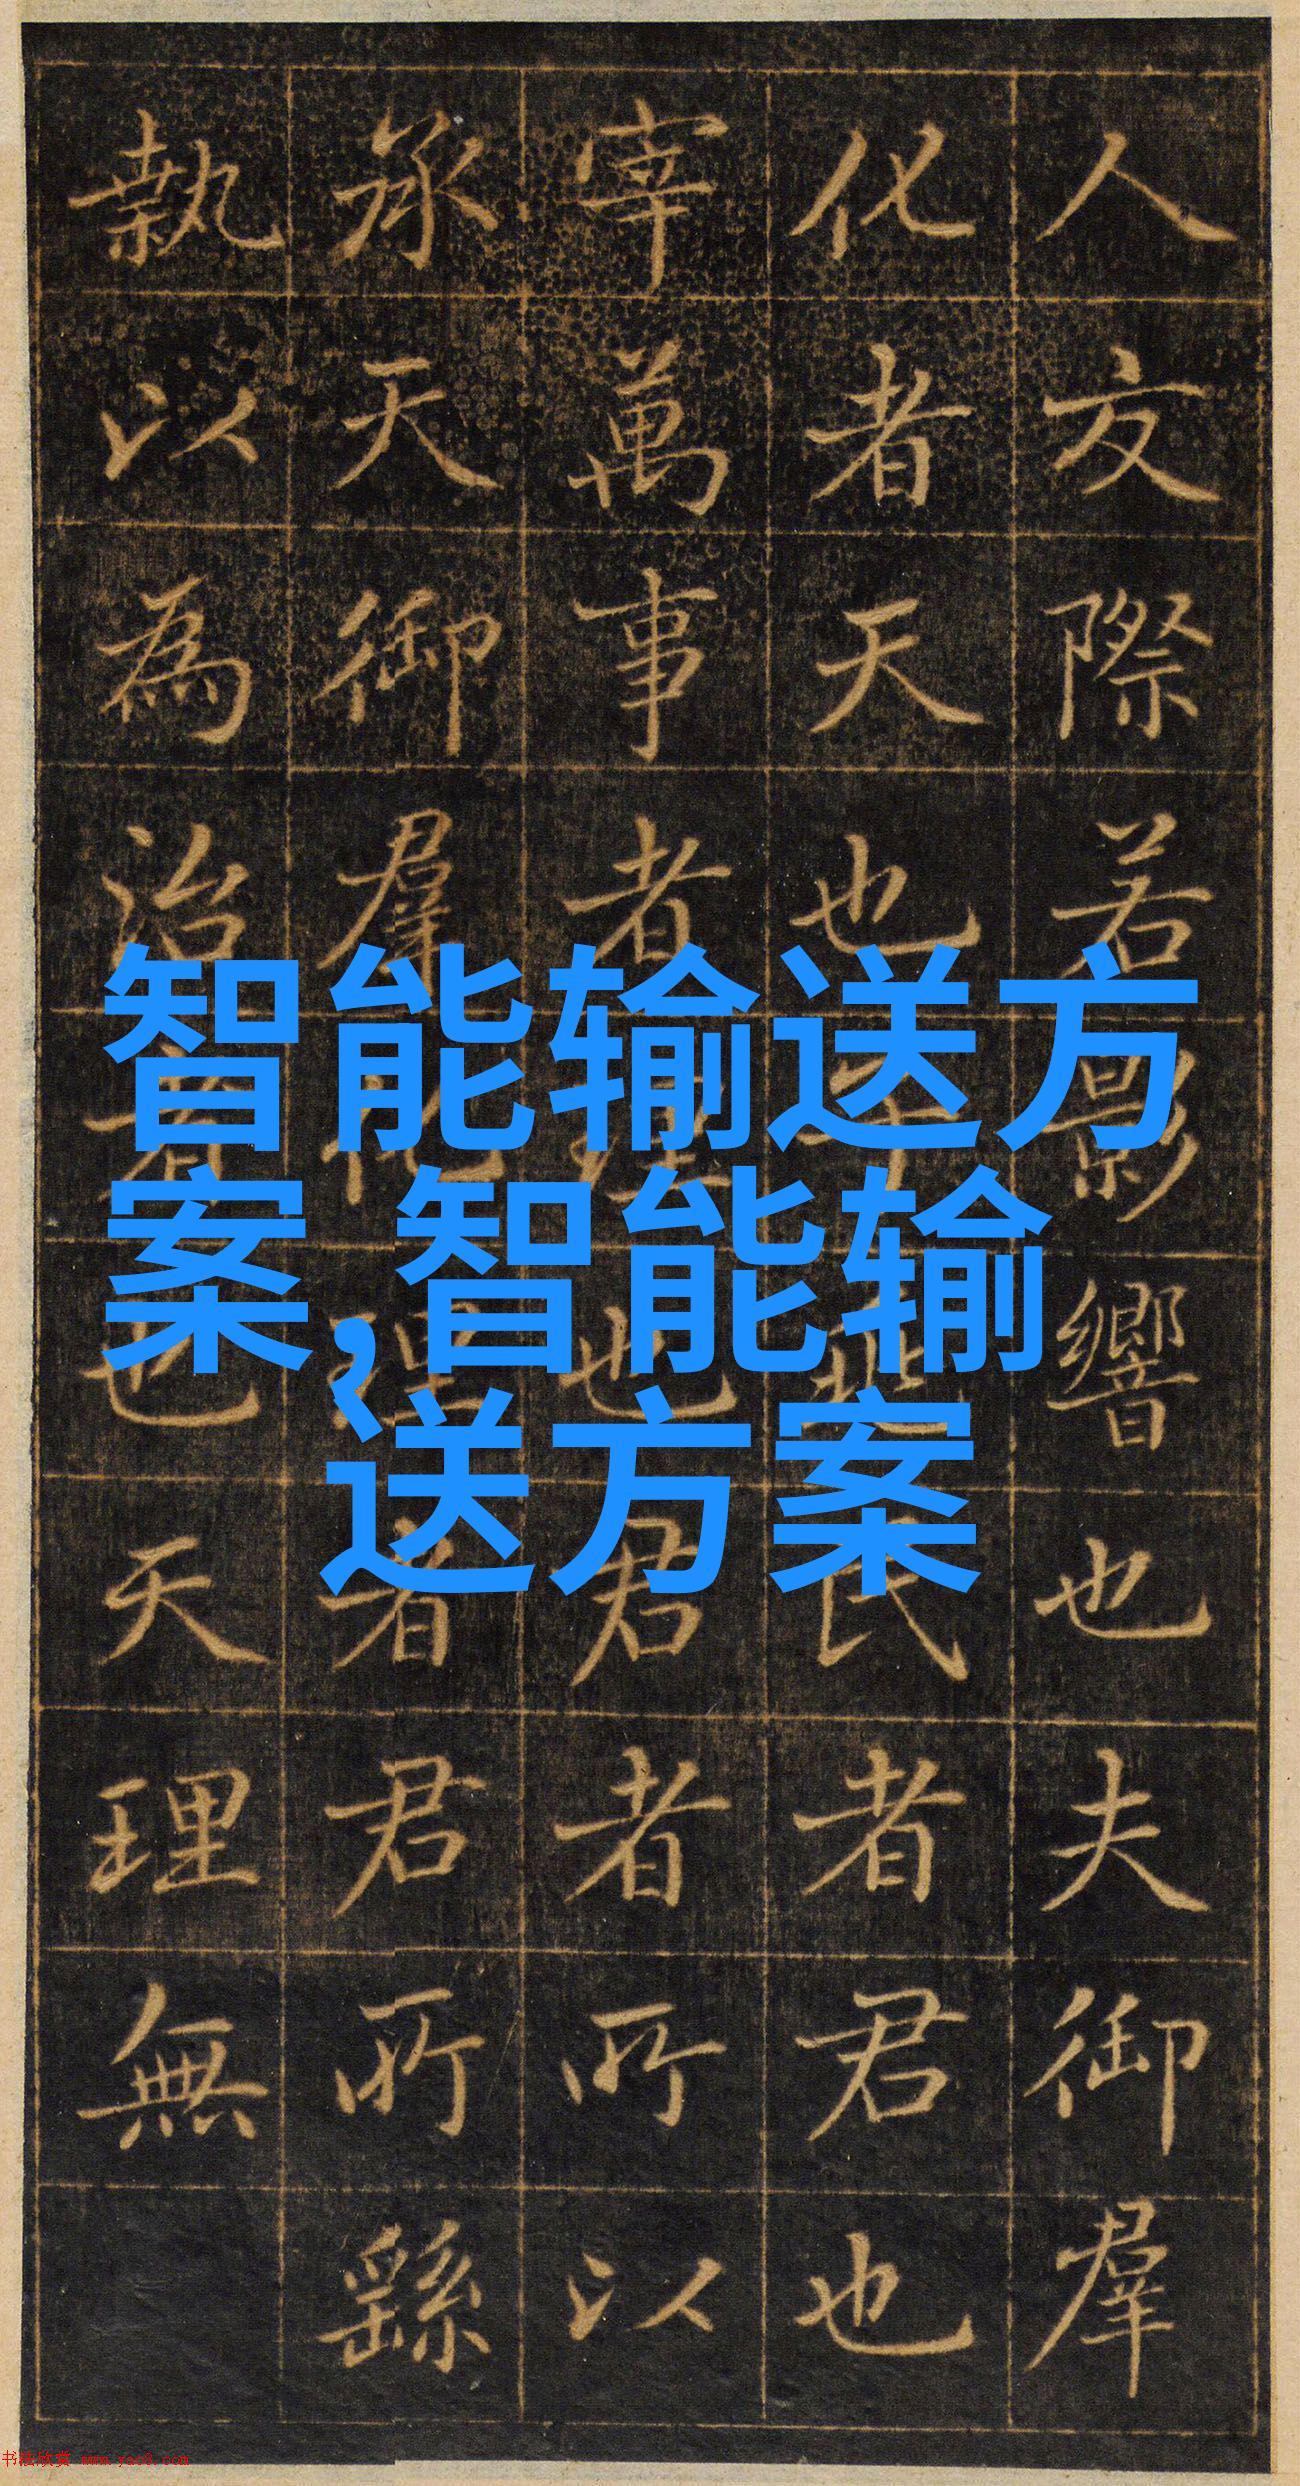 人友際若影響也夫御羣
化者天也
民者君也
宰萬事者
也君者所以
承天御羣化理者君所繇
執以為治者也天理無
智能输送方
案,智能输
送方案
书法欣赏 www.yac8.com